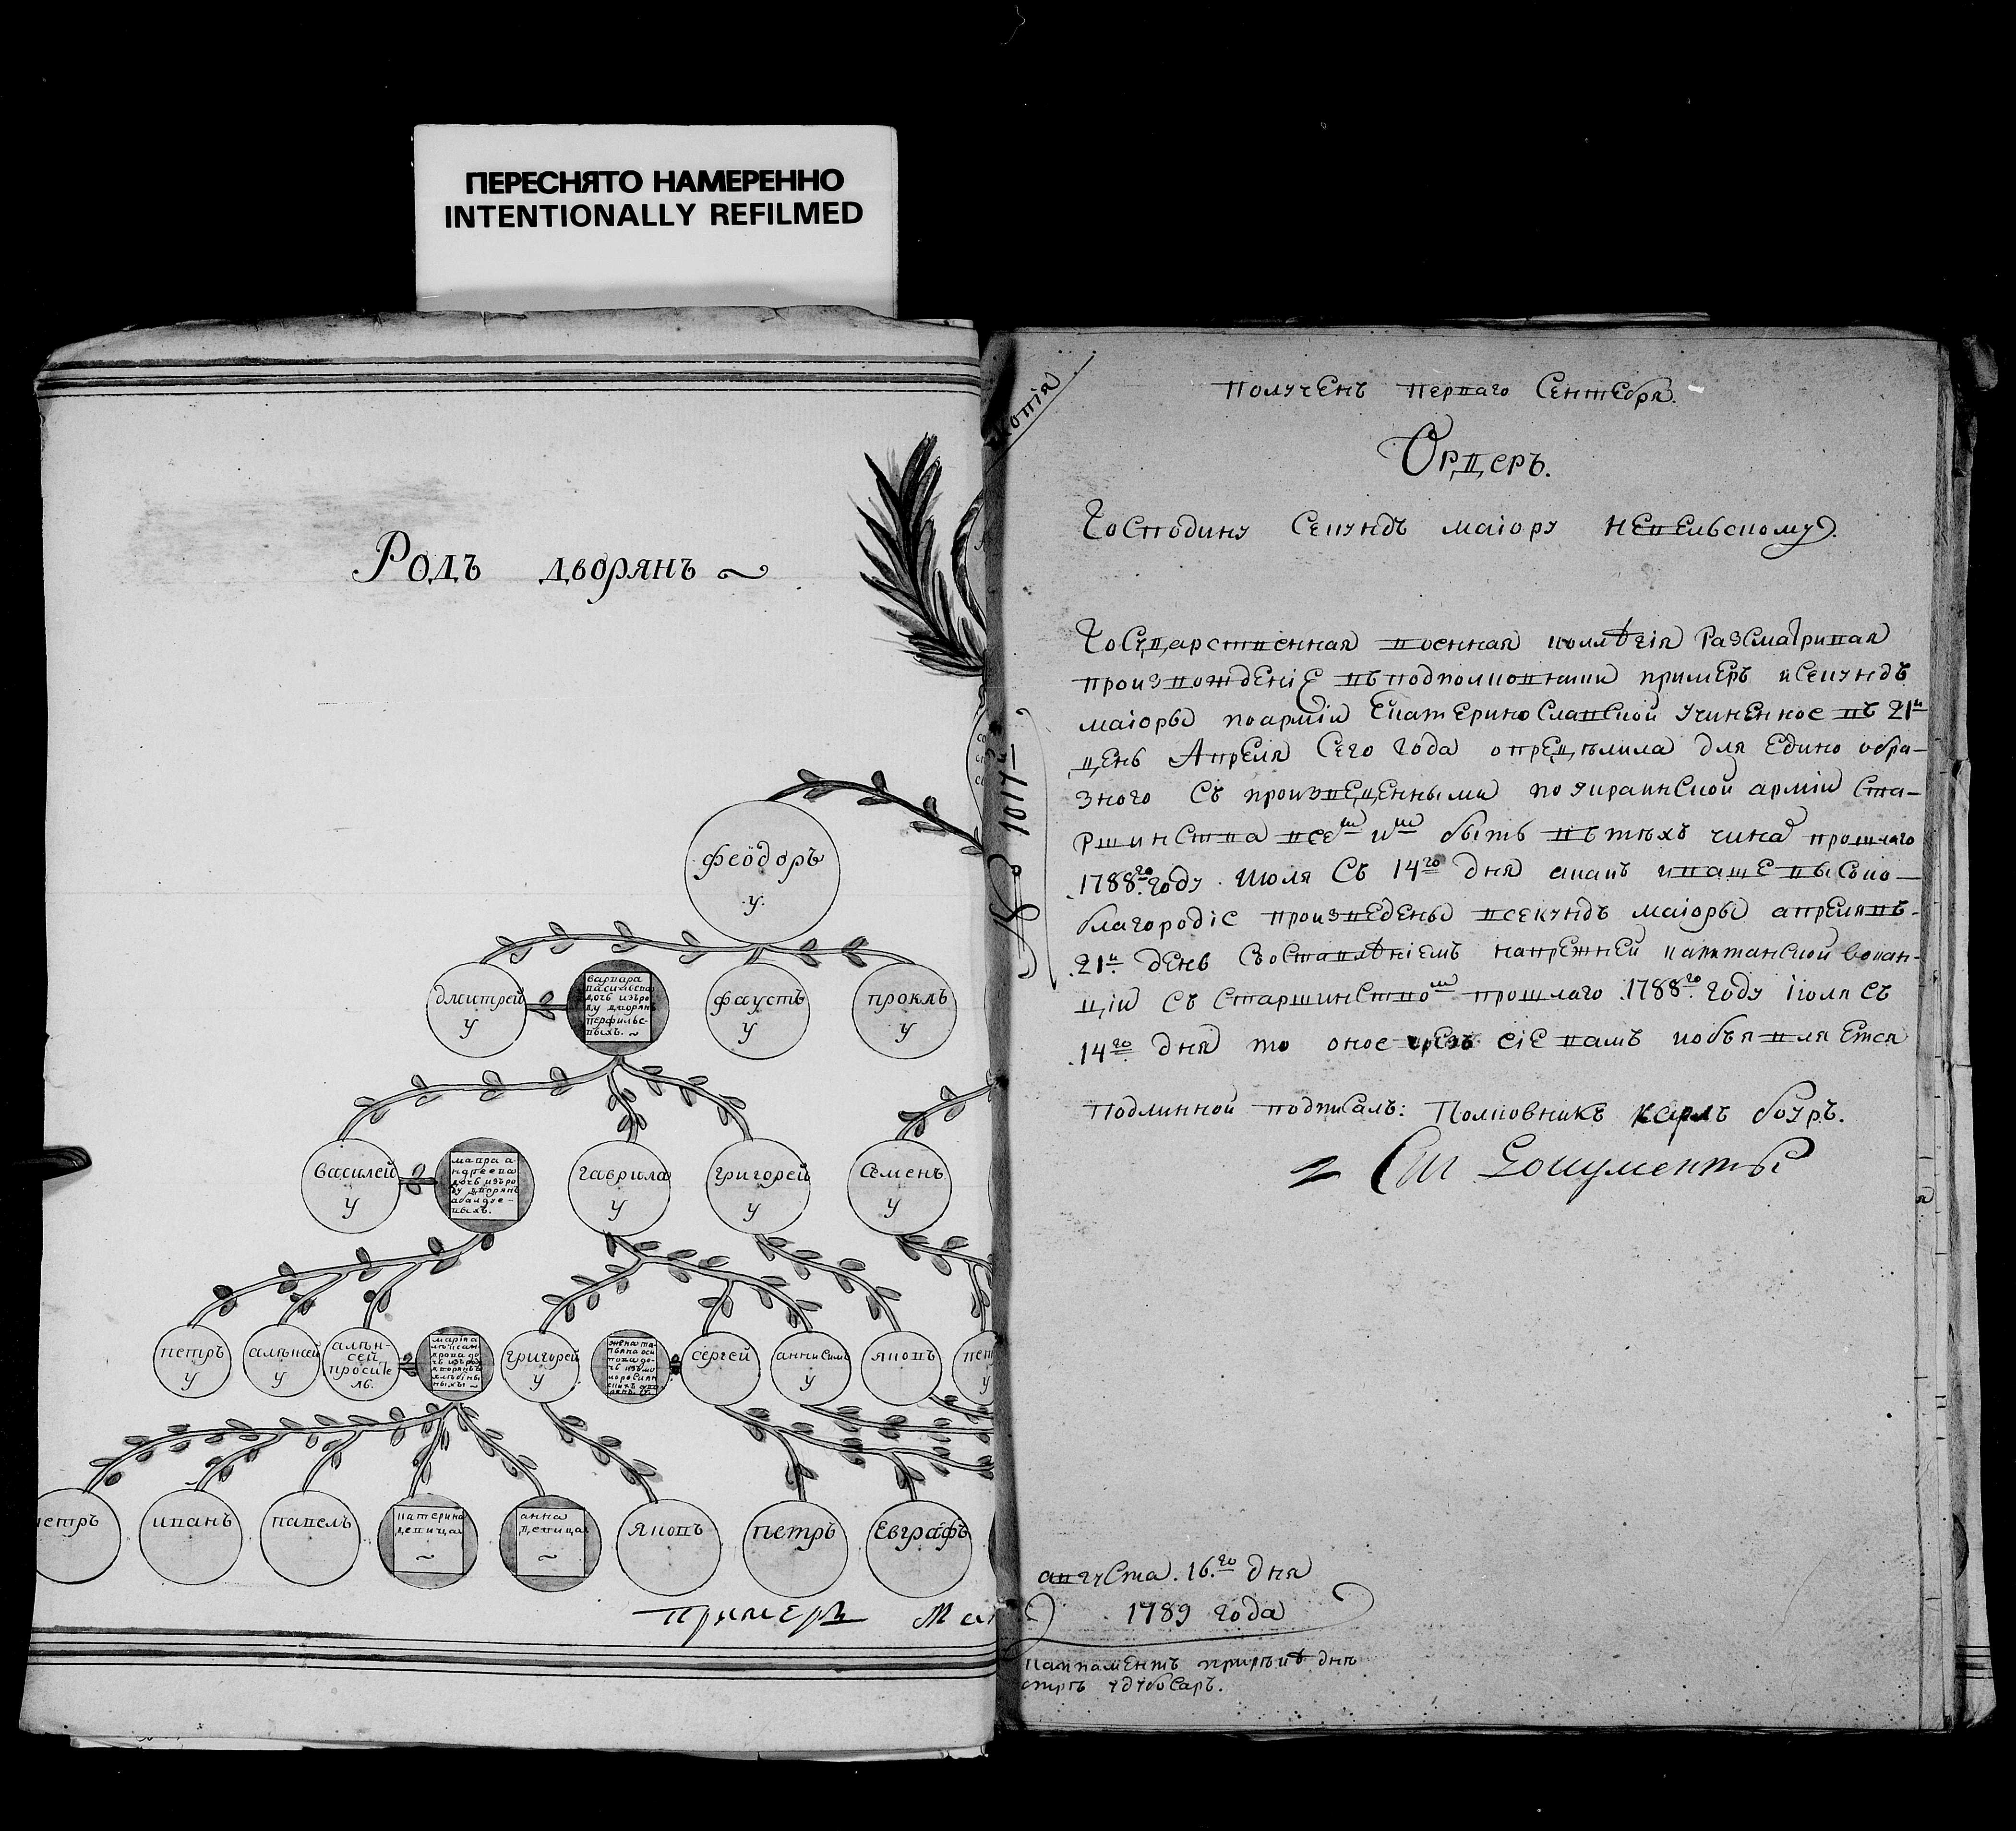 ПЕРЕСНЯТО НАМЕРЕННО
INTENTIONALLY REFILMED
Родъ дворянъ
феодоръ
у.
дмитрей
у
варвара
васильева
дочь изъро
ду дворянъ
перфилье-
выхъ.
фаустъ
у
проклъ
у
василей
у
мавра а-
ндреева
дочь изъро
ду дворянъ
гаврила
у
григорей
у
семенъ
у
петръ
у
алѣксей
у
алѣк-
сей
просите
ль.
григорей
у
сергей
анисимъ
у
яковъ
петръ
иванъ
павелъ
катерина
девица
анна
девица
яковъ
петръ
Евграфъ
примеръ Ма
копія
№ 1017й
Полученъ перваго Сентебря.
Ордеръ.
Господину Секундъ маіору невельскому.
Государственная военная коллѣгія Разсматривая
произвожденіе въподполковники примеръ исекундъ
маіоры поарміи Екатеринославской учиненное въ 21й
день Апреля Сего года определила для едино обра-
зного Съ произведенными поукраинской арміи Ста-
ршинства всемъ имъ быть въ техъ чина прошлаго
1788го году. Июля Съ 14го дня акакъ иваше высоко-
благородіе произведены всекундъ маіоры апреля въ-
21й день Съоставленіемъ напрежней капитанской вакан-
ціи Съ Старшинствомъ прошлаго 1788го году Іюля съ
14го дня то оное чрезъ сіе вамъ иобъявляется
Подлинной подписалъ: Полковникъ карлъ боуръ.
Сіи документы
августа. 16го дня
1789 года
кампаментъ прирѣкѣ дне
стрѣ удубосаръ.